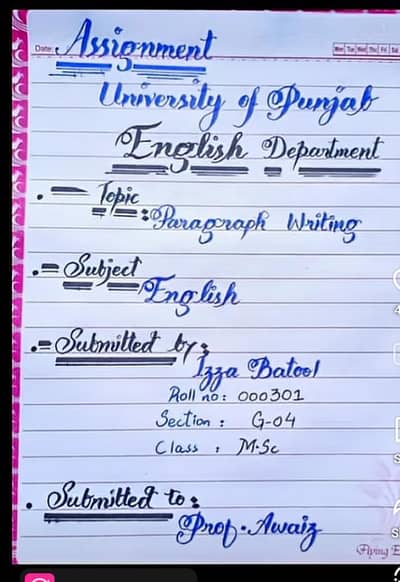 Date:
Assignment
Mon Tue Wed Thu Fri Sat
University of Punjab
English Department
Topic
:Paragraph Writing
Subject
English
Submitted by:
Izza Batool
Roll no: 000301
Section : G-04
Class : M.Sc
Submitted to:
Prof. Awaiz